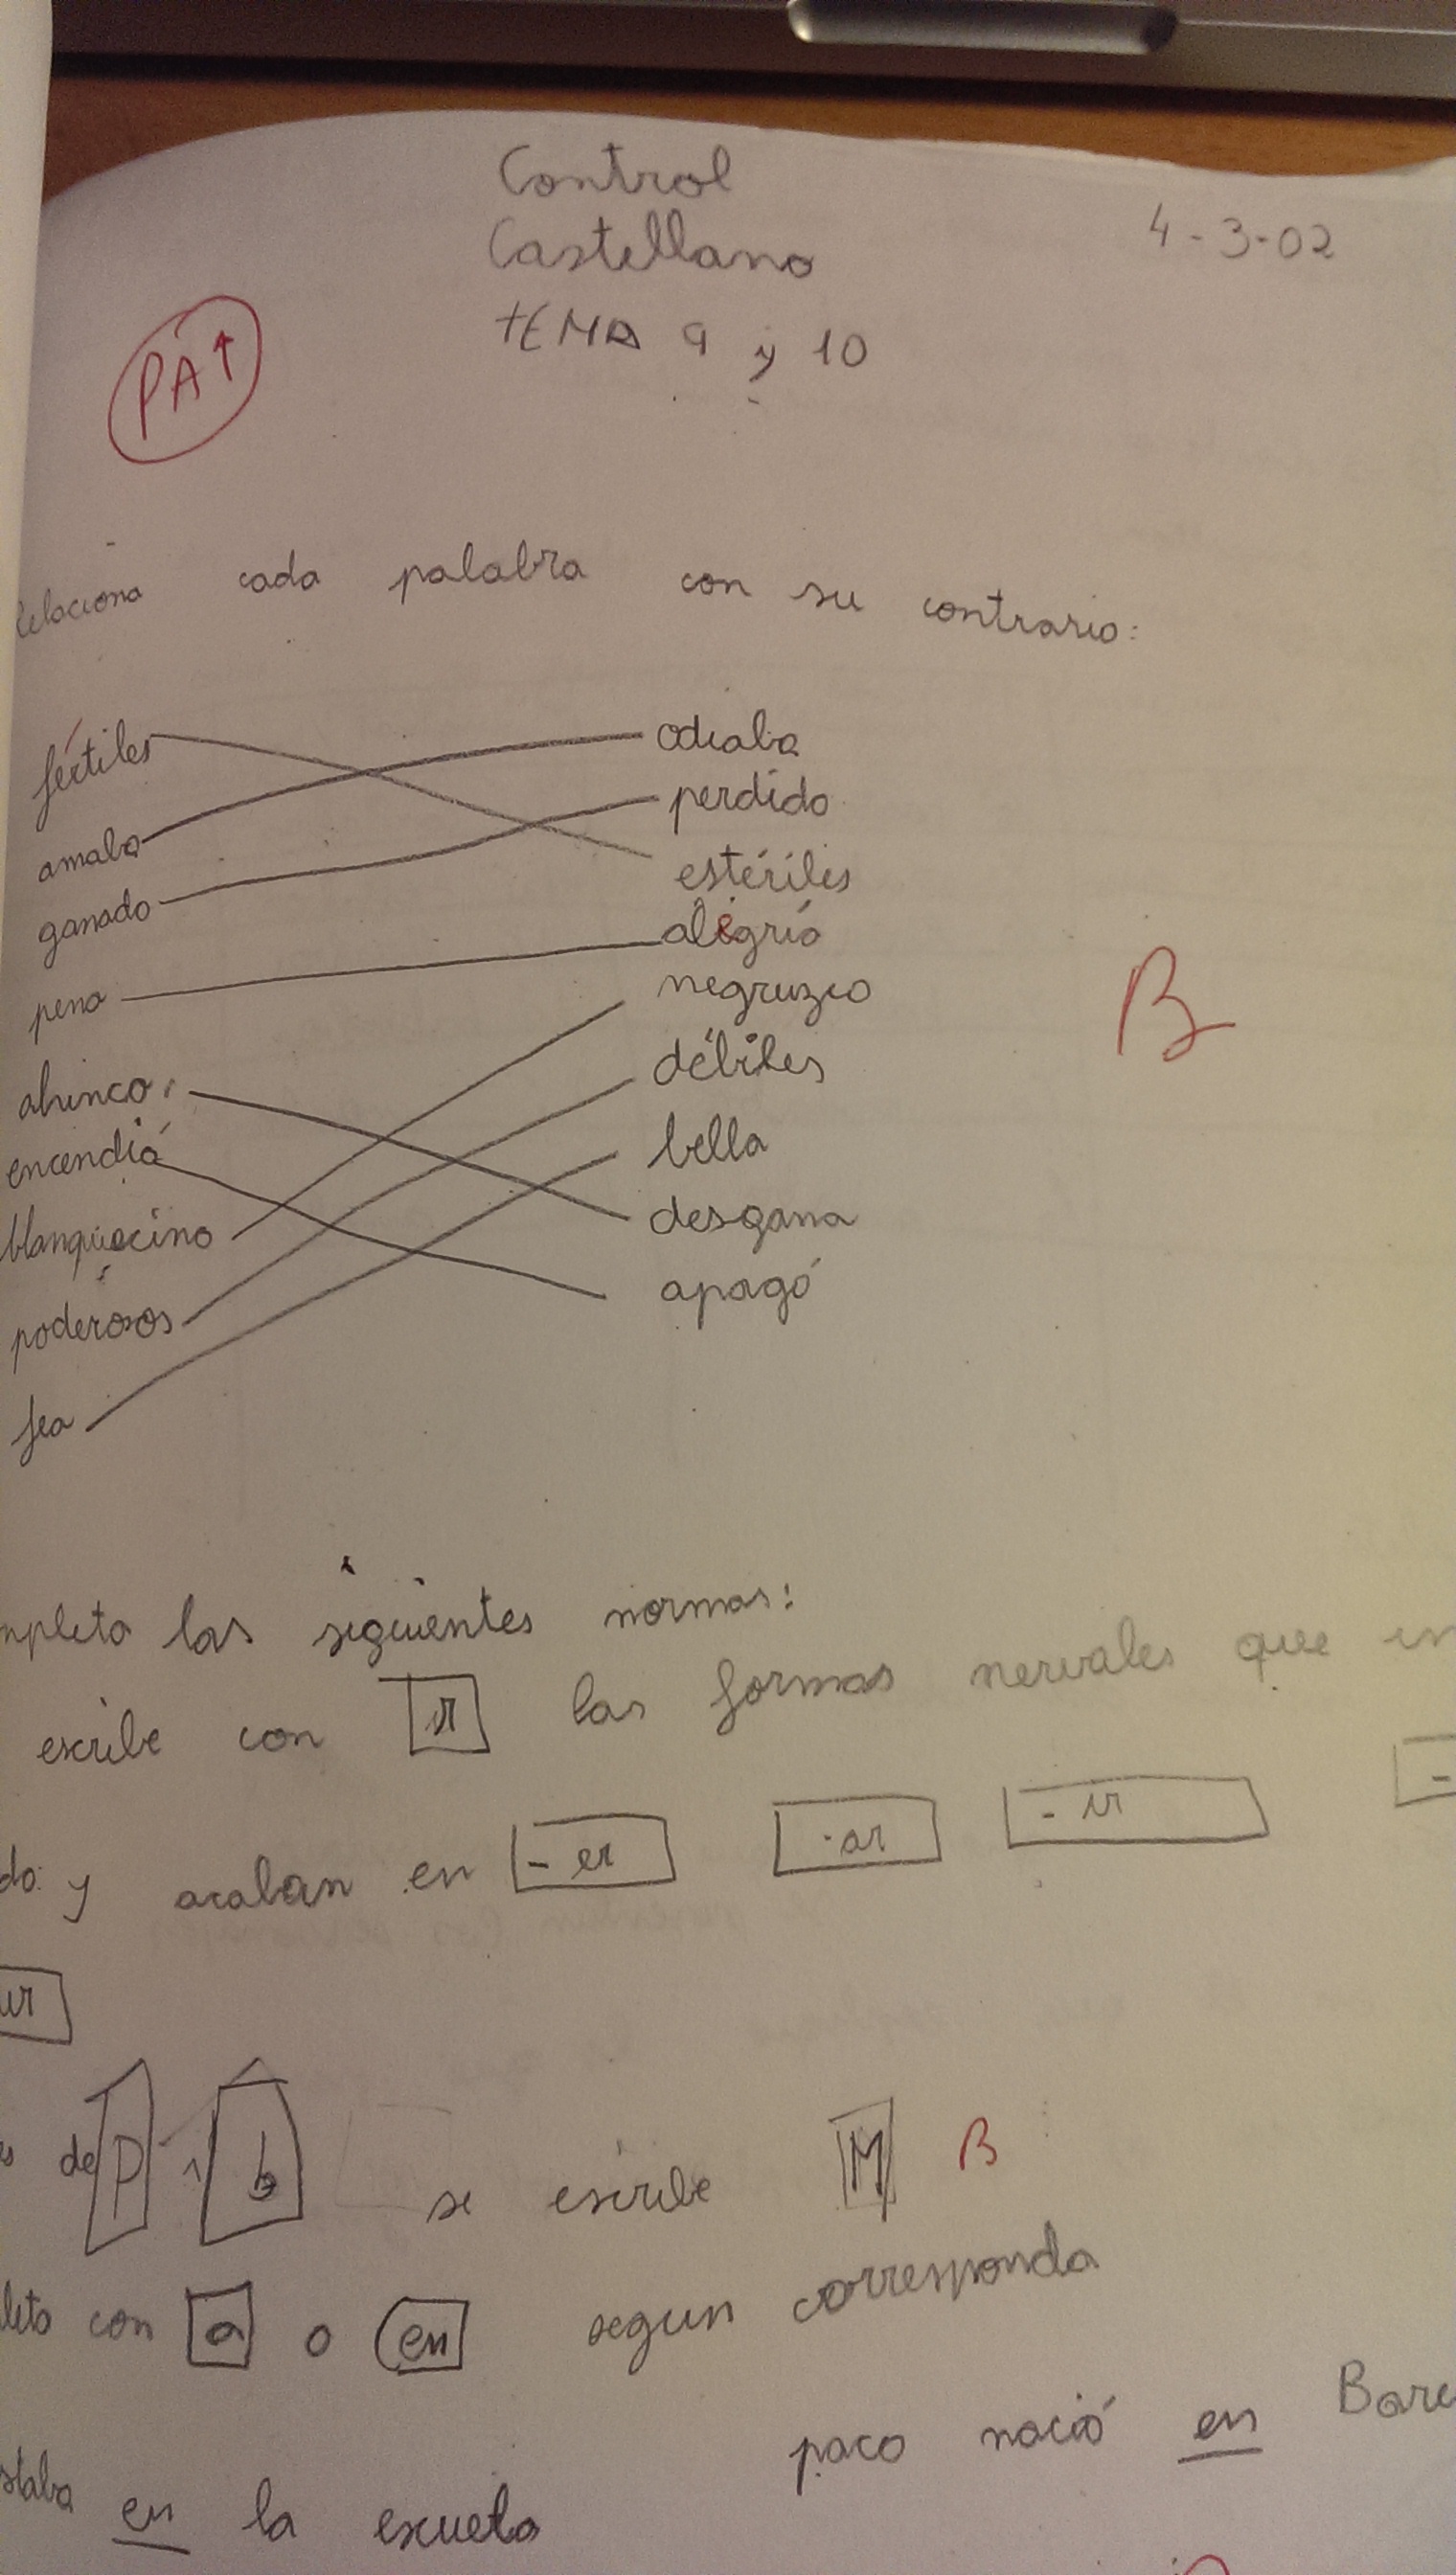 Control
Castellano
4-3-02
TEMA 9 y 10
PA↑
Relaciona cada palabra con su contrario:
fértiles odiaba
amaba perdido
ganado estériles
pena alegría
ahinco negruzco
encendió débiles
blanquecino bella
poderosos desgana
fea apagó
B
las siguientes normas:
escribe con las formas que
y acaban en -er -ar -ir
ur
de P b se escribe M B
con a o en segun corresponda
paco nació en
en la escuela